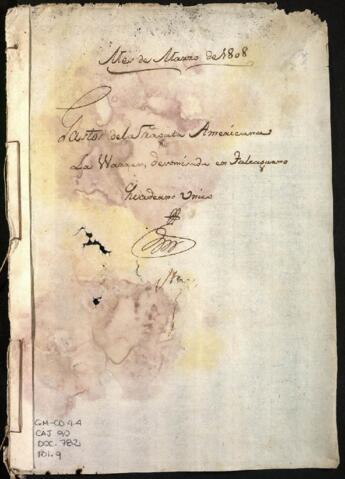 Mes de Marzo de 1808
Gastos del Fragata Americana
La Warren, decomisada en Talcaguano
Quaderno Unico
GM-CO 4.4
CAJ 90
DOC. 782
101.9